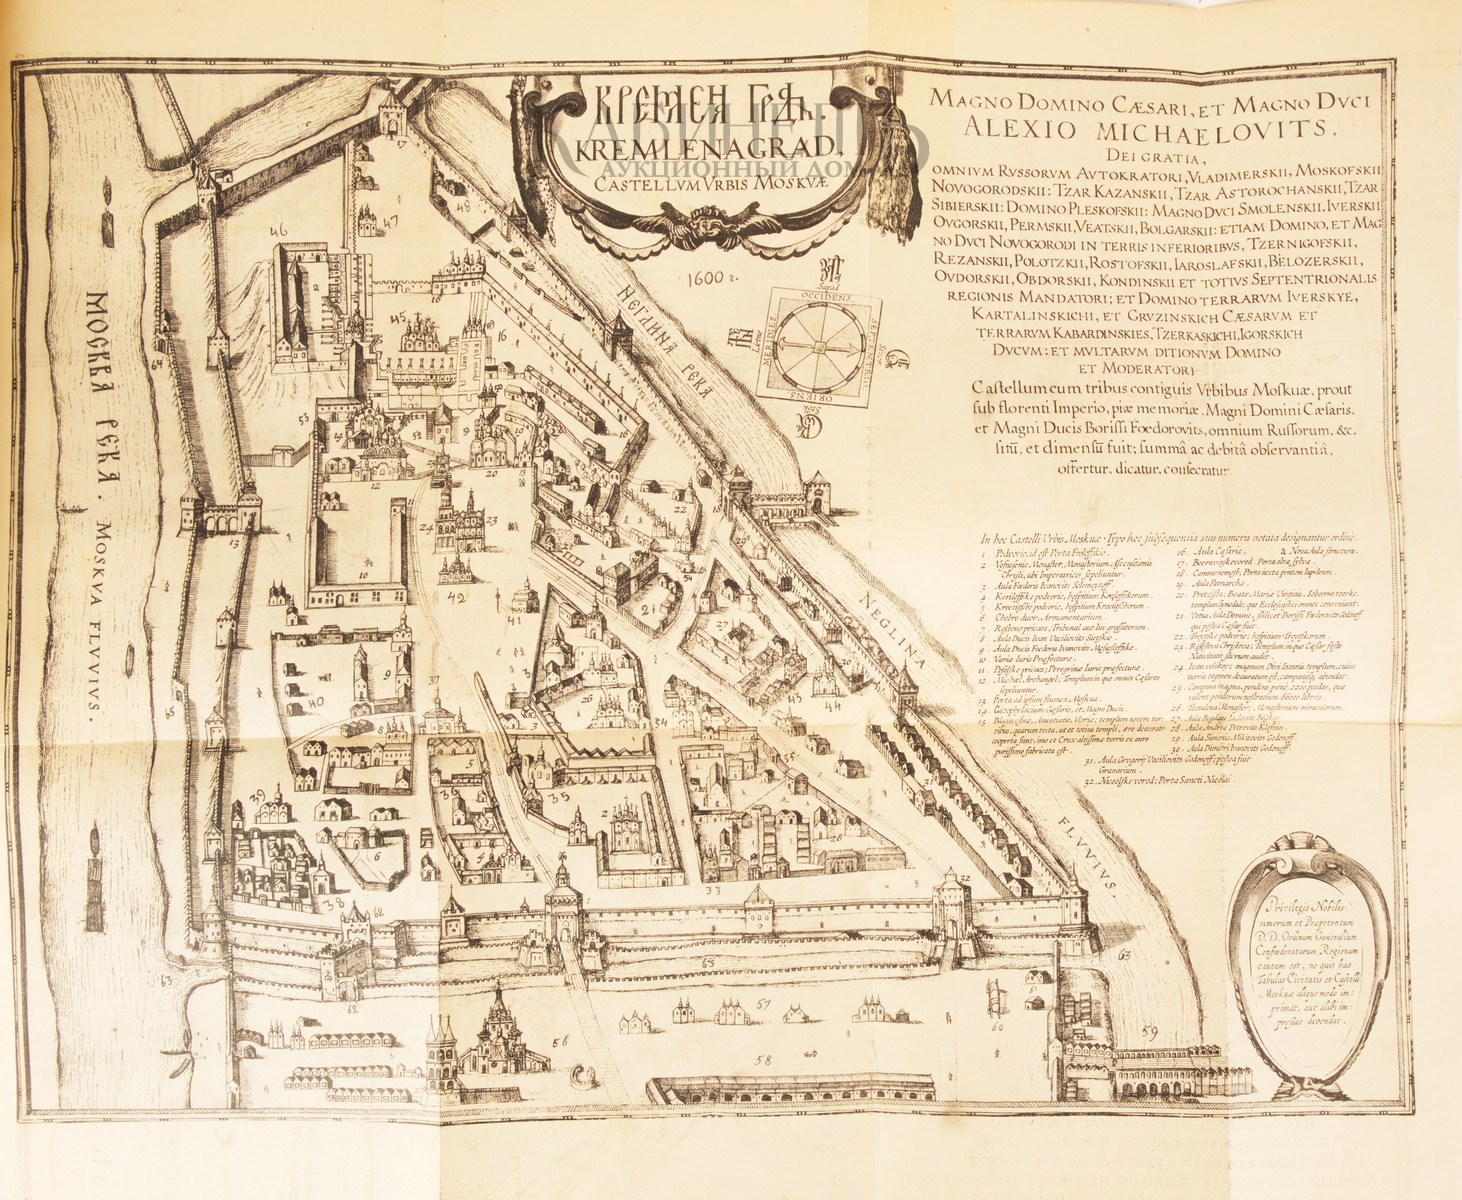 КРЕМЛЕН ГРАД.
KREMLENAGRAD.
CASTELLVM VRBIS MOSKVÆ
КАБИНЕТЪ
АУКЦИОННЫЙ ДОМ
MAGNO DOMINO CÆSARI, ET MAGNO DVCI
ALEXIO MICHAELOVITS.
DEI GRATIA,
OMNIVM RVSSORVM AVTOKRATORI, VLADIMERSKII, MOSKOFSKII
NOVOGORODSKII: TZAR KAZANSKII, TZAR ASTOROCHANSKII, TZAR
SIBIERSKII: DOMINO PLESKOFSKII: MAGNO DVCI SMOLENSKII, IVERSKII
OVGORSKII, PERMSKII, VEATSKII, BOLGARSKII: ETIAM DOMINO, ET MAG
NO DVCI NOVOGORODI IN TERRIS INFERIORIBVS, TZERNIGOFSKII,
REZANSKII, POLOTZKII, ROSTOFSKII, IAROSLAFSKII, BELOZERSKII,
OVDORSKII, OBDORSKII, KONDINSKII ET TOTIVS SEPTENTRIONALIS
REGIONIS MANDATORI; ET DOMINO TERRARVM IVERSKYE,
KARTALINSKICHI, ET GRVZINSKICH CÆSARVM ET
TERRARVM KABARDINSKIES, TZERKASKICHI, IGORSKICH
DVCVM: ET MVLTARVM DITIONVM DOMINO
ET MODERATORI
Castellum cum tribus contiguis Vrbibus Moskuæ, prout
sub florenti Imperio, piæ memoriæ, Magni Domini Cæsaris,
et Magni Ducis Borissi Foedorovits, omnium Russorum, &c.
sitū, et dimensū fuit; summâ ac debitâ observantiâ,
offertur, dicatur, consecratur.
1600 г.
OCCIDENS.
SEPTENTRIO
ORIENS
MERIDIES
НЕГЛИНА РЕКА
NEGLINA
FLVVIVS
МОСКВА РЕКА.
MOSKVA FLVVIVS.
In hoc Castelli Vrbis Moskuæ Typo hæc subsequentia suis numeris notata designantur ordine.
1. Podvorie, id est Porta Froloffskie.
2. Vosnesenie Monastir, Monasterium Ascensionis
Christi, ubi Imperatrices sepeliuntur.
3. Aula Fœdoris Ivanovits
4. Kerilofske podvorie, hospitium
5. podvorie, hospitium
6. Chobro duor, Armamentarium.
7. Rosbono pricaes; Tribunal aut lus grassatorum.
8. Aula Ducis Ivan Vaciliovits
9. Aula Ducis Foedora Ivanovits
10. Variæ Iuris Præfecturæ.
11. pricaes; Peregrinæ Iuris præfecturæ.
12. Michael Archangel; Templum in quo omnes Cæsares
sepeliuntur.
13. Porta ad ipsum flumen Moskua.
14. Gazophylacium Cæsaris, et Magni Ducis.
15. Annuntiatio Mariæ; templum novem tur-
ribus, quarum tecta, ut et totius templi, ære deaurato
cooperta sunt; imo et Crux altissimæ turris ex auro
purissimo fabricata est.
16. Aula Cæsaris. a Nova Aulæ structura.
17. Porta alta sylva.
18. Porta iuxta pontem lapideum.
19. Aula Patriarchæ.
20. Beatæ Mariæ Virginis,
templum synodale, quo Ecclesiastici omnes conveniunt.
21. Vetus Aula Domini, scilicet Borissi Foedorovits Godonoff
qui postea Cæsar fuit.
22. podvorie; hospitium
23. Templum in quo Cæsar festo
Nativitatis sacrum audit.
24. Ivan velikoy; magnum Divi Ioannis templum, cuius
turris tegmen deauratum est, campanisq; abundat.
25. Campana magna, pendens pene 2200 poedas, quæ
valent pondorum nostratium 66000 libras.
26. Monastir, Monasterium miraculorum.
27. Aula
28. Aula Andrea Petrovits
29. Aula Simonis Mikitovits Godonoff.
30. Aula Dimitri Ivanovits Godonoff.
31. Aula Gregory Vaciliovits Godonoff; postea fuit
Granarium.
32. vorod; Porta Sancti Nicolai.
Privilegio Nobilis-
simorum et Præpotentum
D.D. Ordinum Generalium
Confœderatarum Regionum
cautum est, ne quis has
Tabulas Civitatis et Castelli
Moskuæ aliquo modo im-
primat, aut alibi im-
pressas divendat.
46
47
48
45
16
53
64
12
20
24
23
22
10
42
41
21
13
27
40
37
9
43
44
34
55
39
36
35
38
33
32
62
63
65
57
56
58
59
60
61